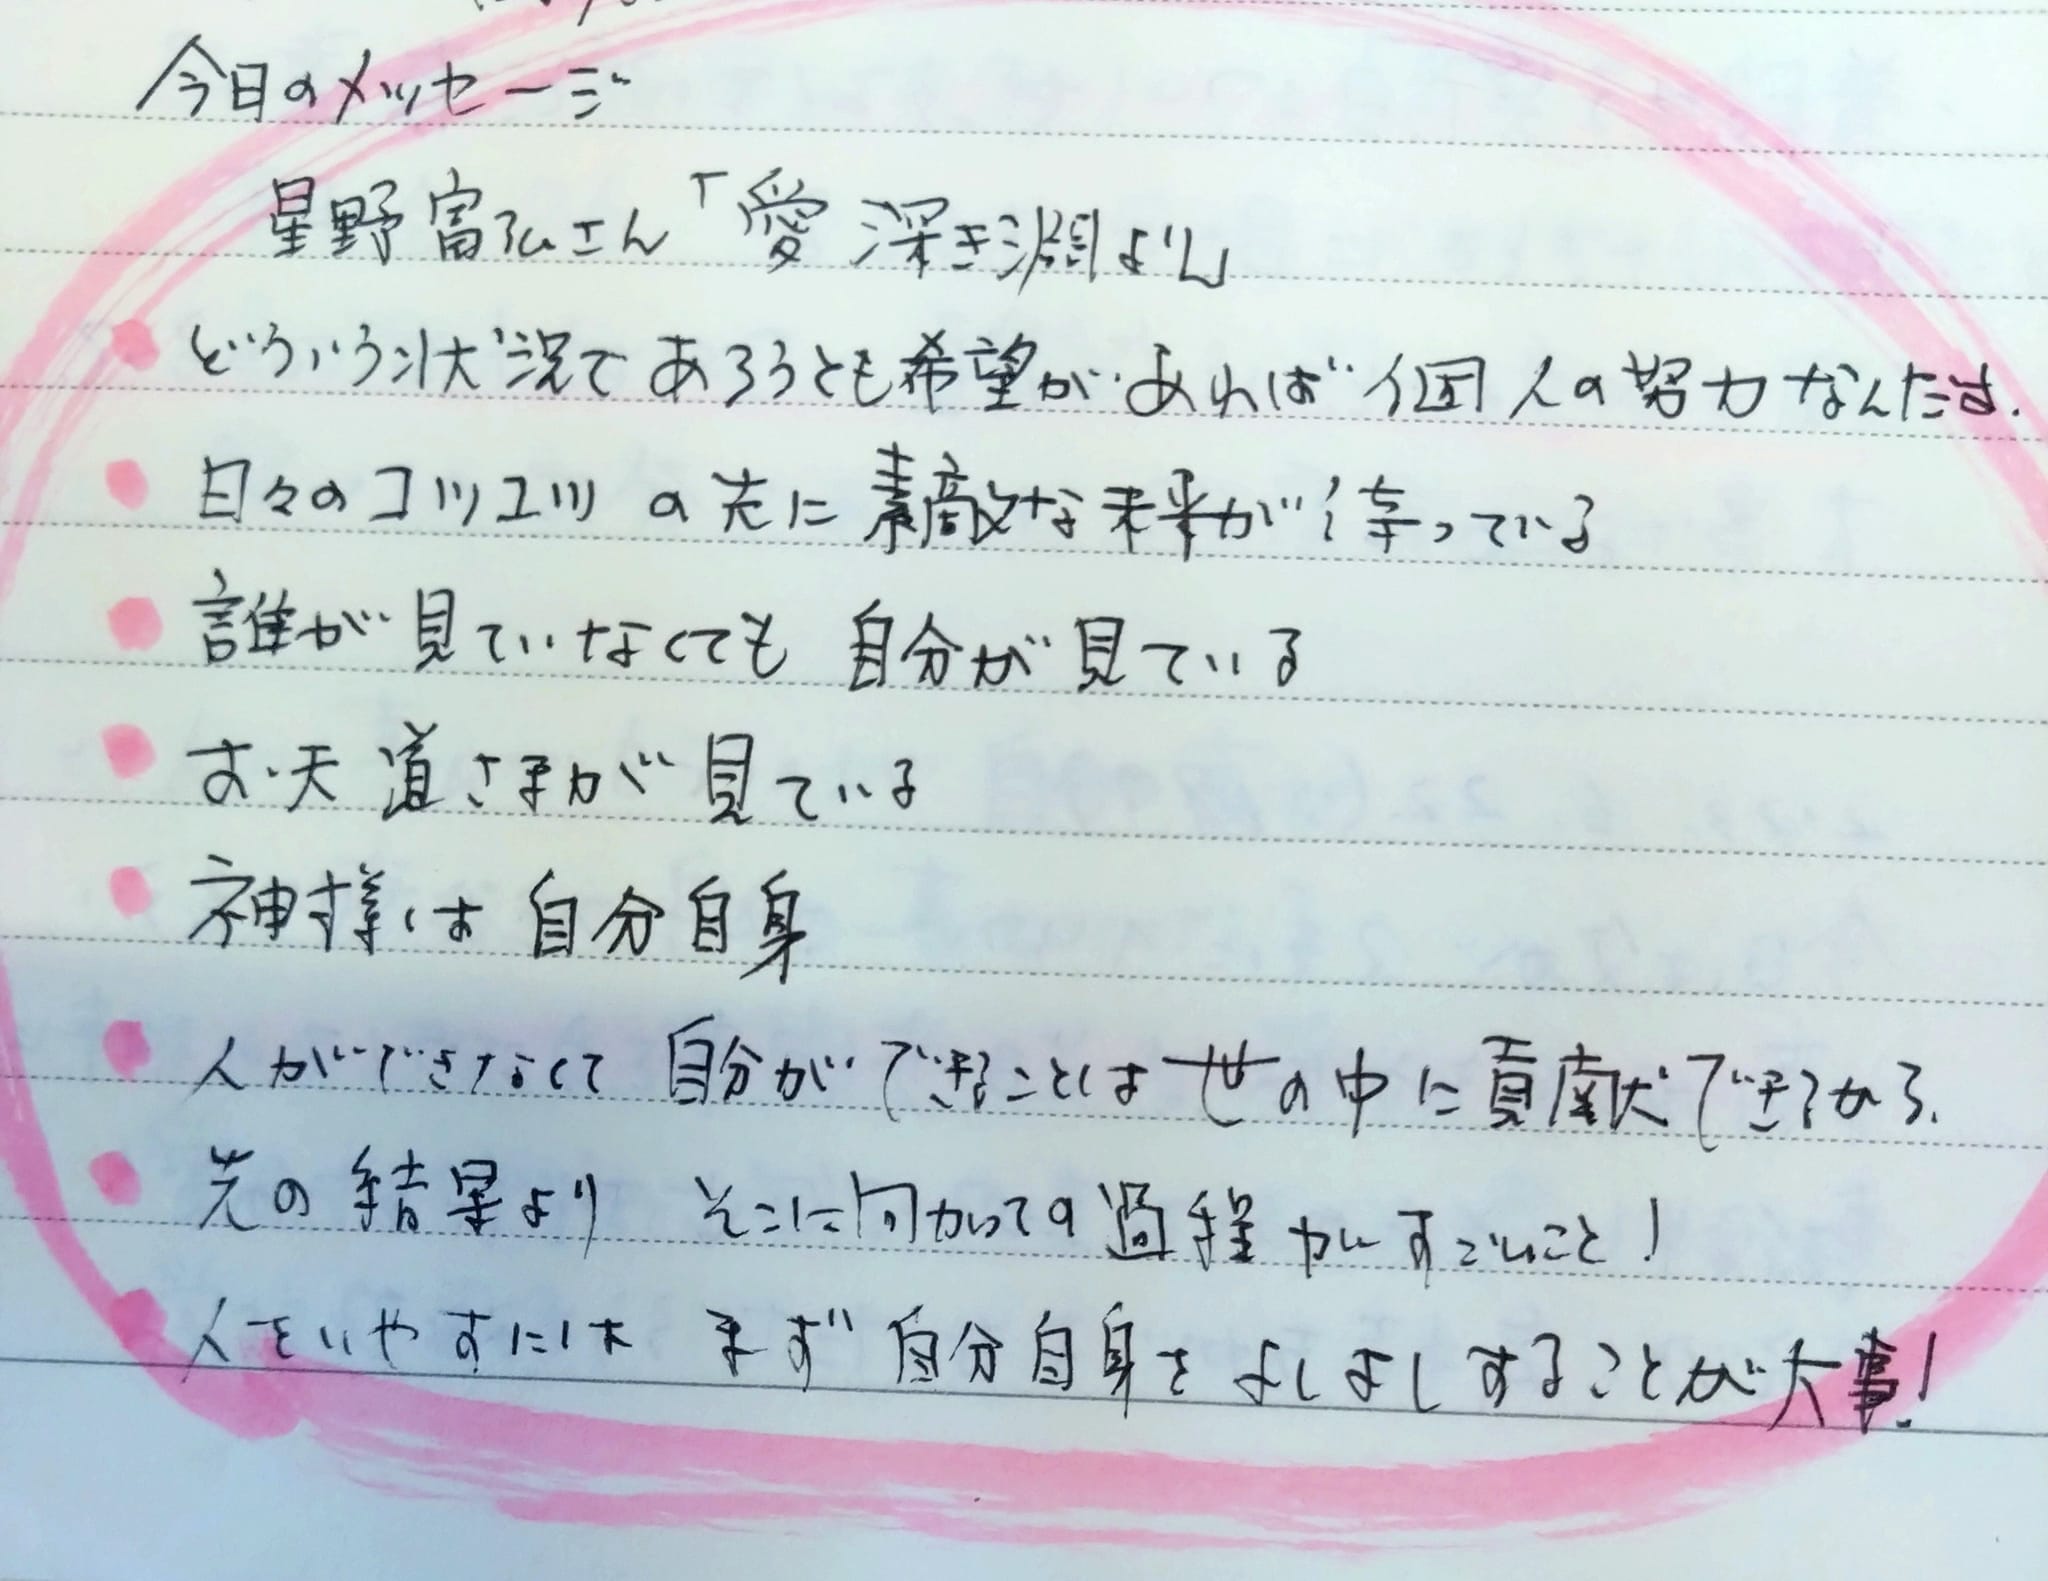 今日のメッセージ
星野富弘さん「愛 深き淵より」
どういう状況であろうとも希望があれば個人の努力なんだよ.
日々のコツコツの先に素敵な未来が待っている
誰が見ていなくても 自分が見ている
お天道さまが見ている
神様は自分自身
人ができなくて 自分ができることは世の中に貢献できるから.
先の結果より そこに向かっての過程がすごいこと!
人をいやすには まず自分自身をよしよしすることが大事!